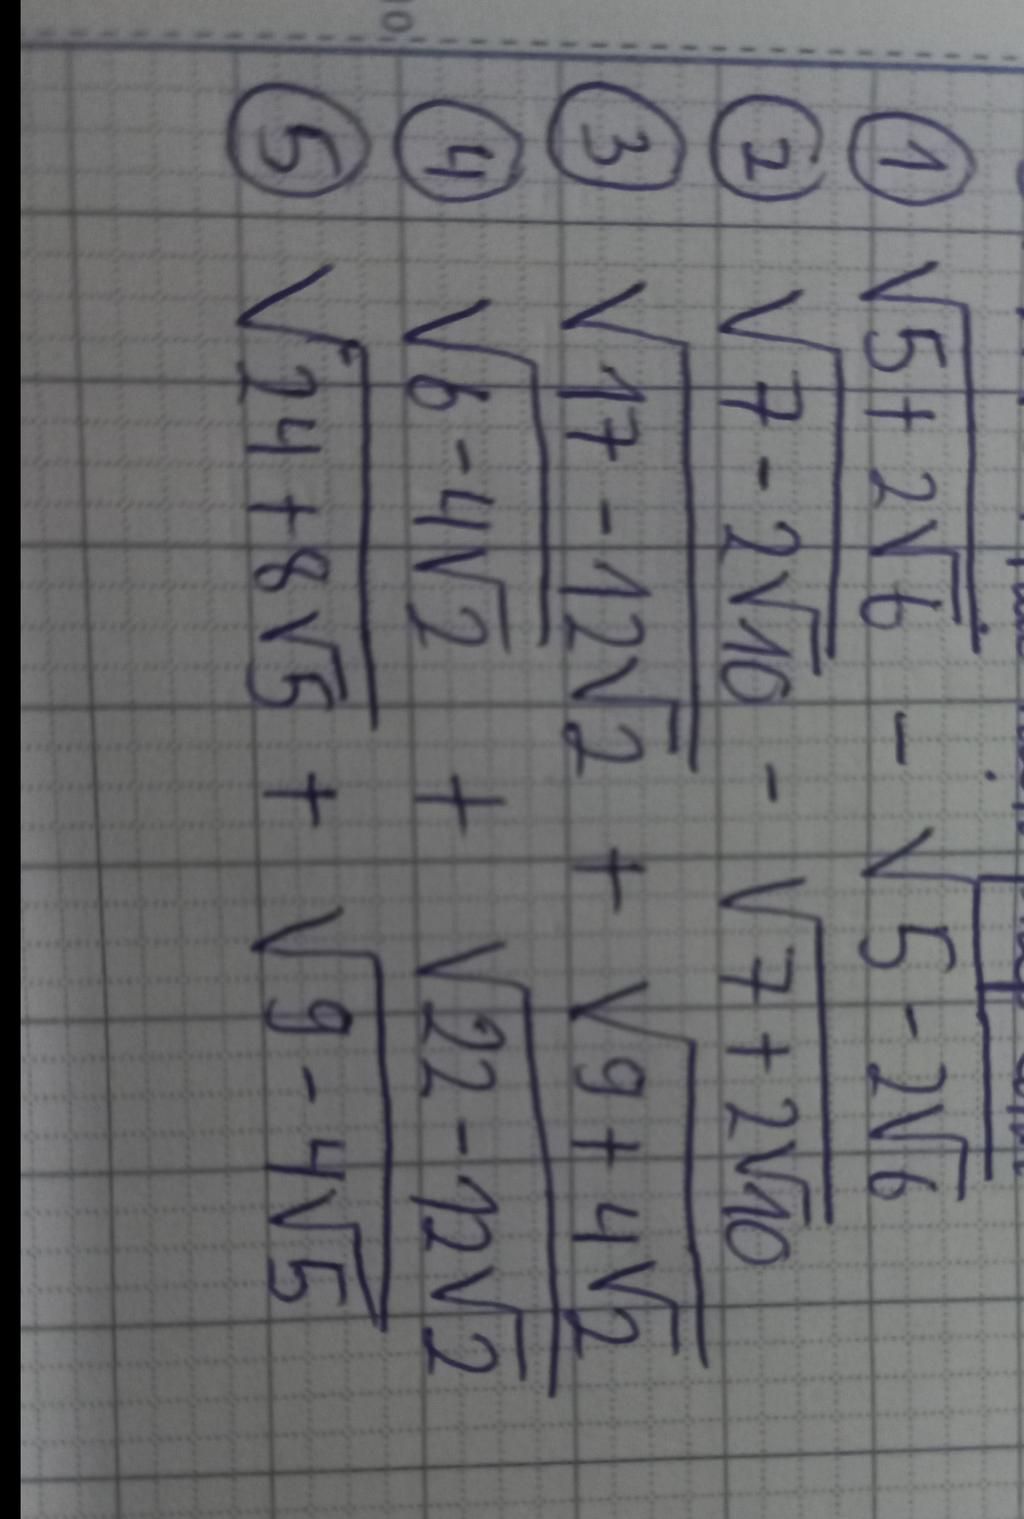 ① √(5 + 2√6) - √(5 - 2√6)
② √(7 - 2√10) - √(7 + 2√10)
③ √(17 - 12√2) + √(9 + 4√2)
④ √(6 - 4√2) + √(22 - 12√2)
⑤ √(24 + 8√5) + √(9 - 4√5)